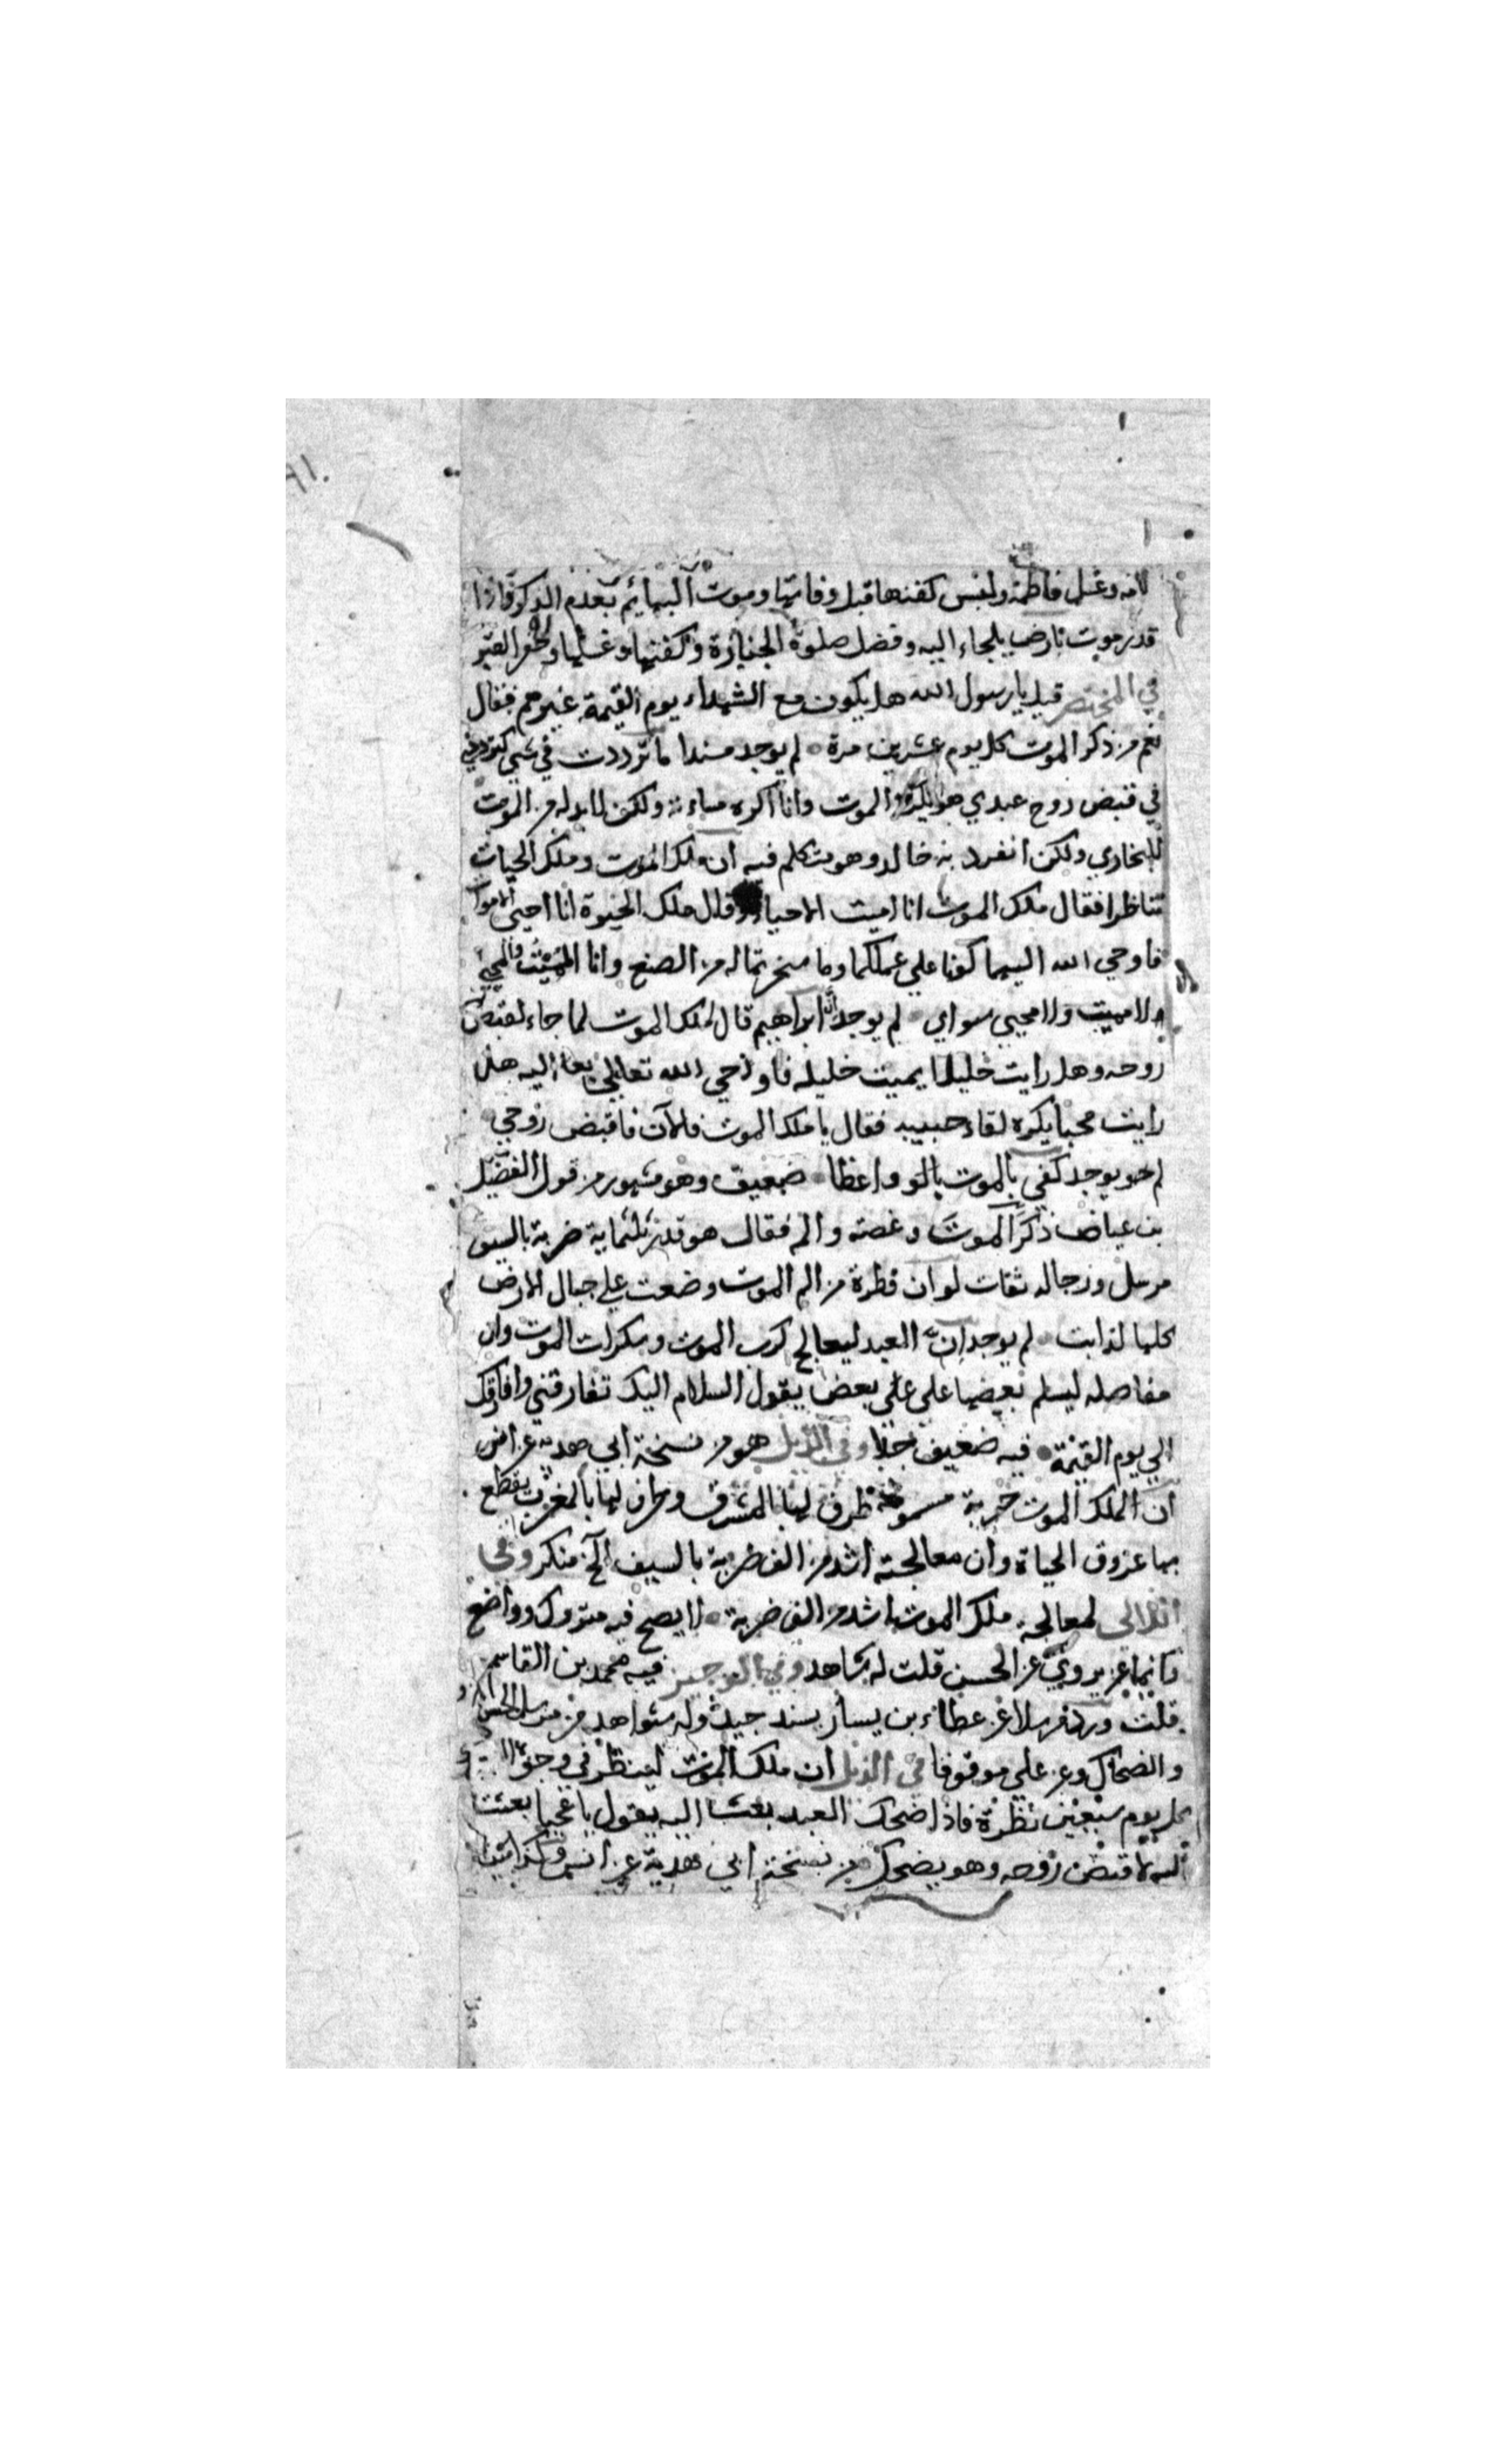 لامه وغسل فاطمة ولبس كفنها قبل وفاتها وموت البهائم بعدم الذكر فاذا
قدر موت بارض يلجاء اليه وفضل صلوة الجنازة وكفنها وغسلها وحفر القبر
في المختصر قيل يا رسول الله هل يكون مع الشهداء يوم القيمة غيرهم فقال
نعم من ذكر الموت كل يوم عشرين مرة لم يوجد مسندا ما ترددت في شي كترددي
في قبض روح عبدي هو يكره الموت وانا اكره مساءته ولكن لا بد له من الموت
للبخاري ولكن انفرد به خالد وهو متكلم فيه ان ملك الموت وملك الحيات
تناظرا فقال ملك الموت انا اميت الاحياء وقال ملك الحيوة انا احيي الاموات
فاوحي الله اليهما كونا علي عملكما وما سخرتما له من الصنع وانا المميت والمحيي
ولا مميت ولا محيي سواي لم يوجد ان ابراهيم قال لملك الموت لما جاء لقبض
روحه وهل رايت خليلا يميت خليله فاوحي الله تعالي اليه هل
رايت محبا يكره لقاء حبيبه فقال يا ملك الموت فالآن فاقبض روحي
لم يوجد كفي بالموت واعظا ضعيف وهو مشهور من قول الفضيل
بن عياض ذكر الموت وغصته والم فقال هو قدر ثلثماية ضربة بالسيف
مرسل ورجاله ثقات لو ان قطرة من الم الموت وضعت علي جبال الارض
كلها لذابت لم يوجد ان العبد ليعالج كرب الموت وسكرات الموت وان
مفاصله ليسلم بعضها على على بعض يقول السلام اليك تفارقني وافارقك
الي يوم القيمة فيه ضعيف جدا وفي الذيل هو من نسخة ابي هدبة عن انس
ان لملك الموت حربة مسمومة طرف لها بالمشرق وطرف لها بالمغرب يقطع
بها عروق الحياة وان معالجته اشد من الف ضربة بالسيف الخ منكر وفي
اللالي لمعالجة ملك الموت اشد من الف ضربة لا يصح فيه متروك وواضع
وانما يروي عن الحسن قلت له شاهد وفي الوجيز فيه محمد بن القاسم
قلت ورد مرسلا عن عطاء بن يسار بسند جيد وله شواهد من مرسل الحسن
والضحاك وعن علي موقوفا في الذيل ان ملك الموت لينظر في وجوه
كل يوم سبعين نظرة فاذا ضحك العبد بعث اليه يقول يا عجبا بعثت
اليه لاقبض روحه وهو يضحك من نسخة ابي هدبة عن انس وكذا